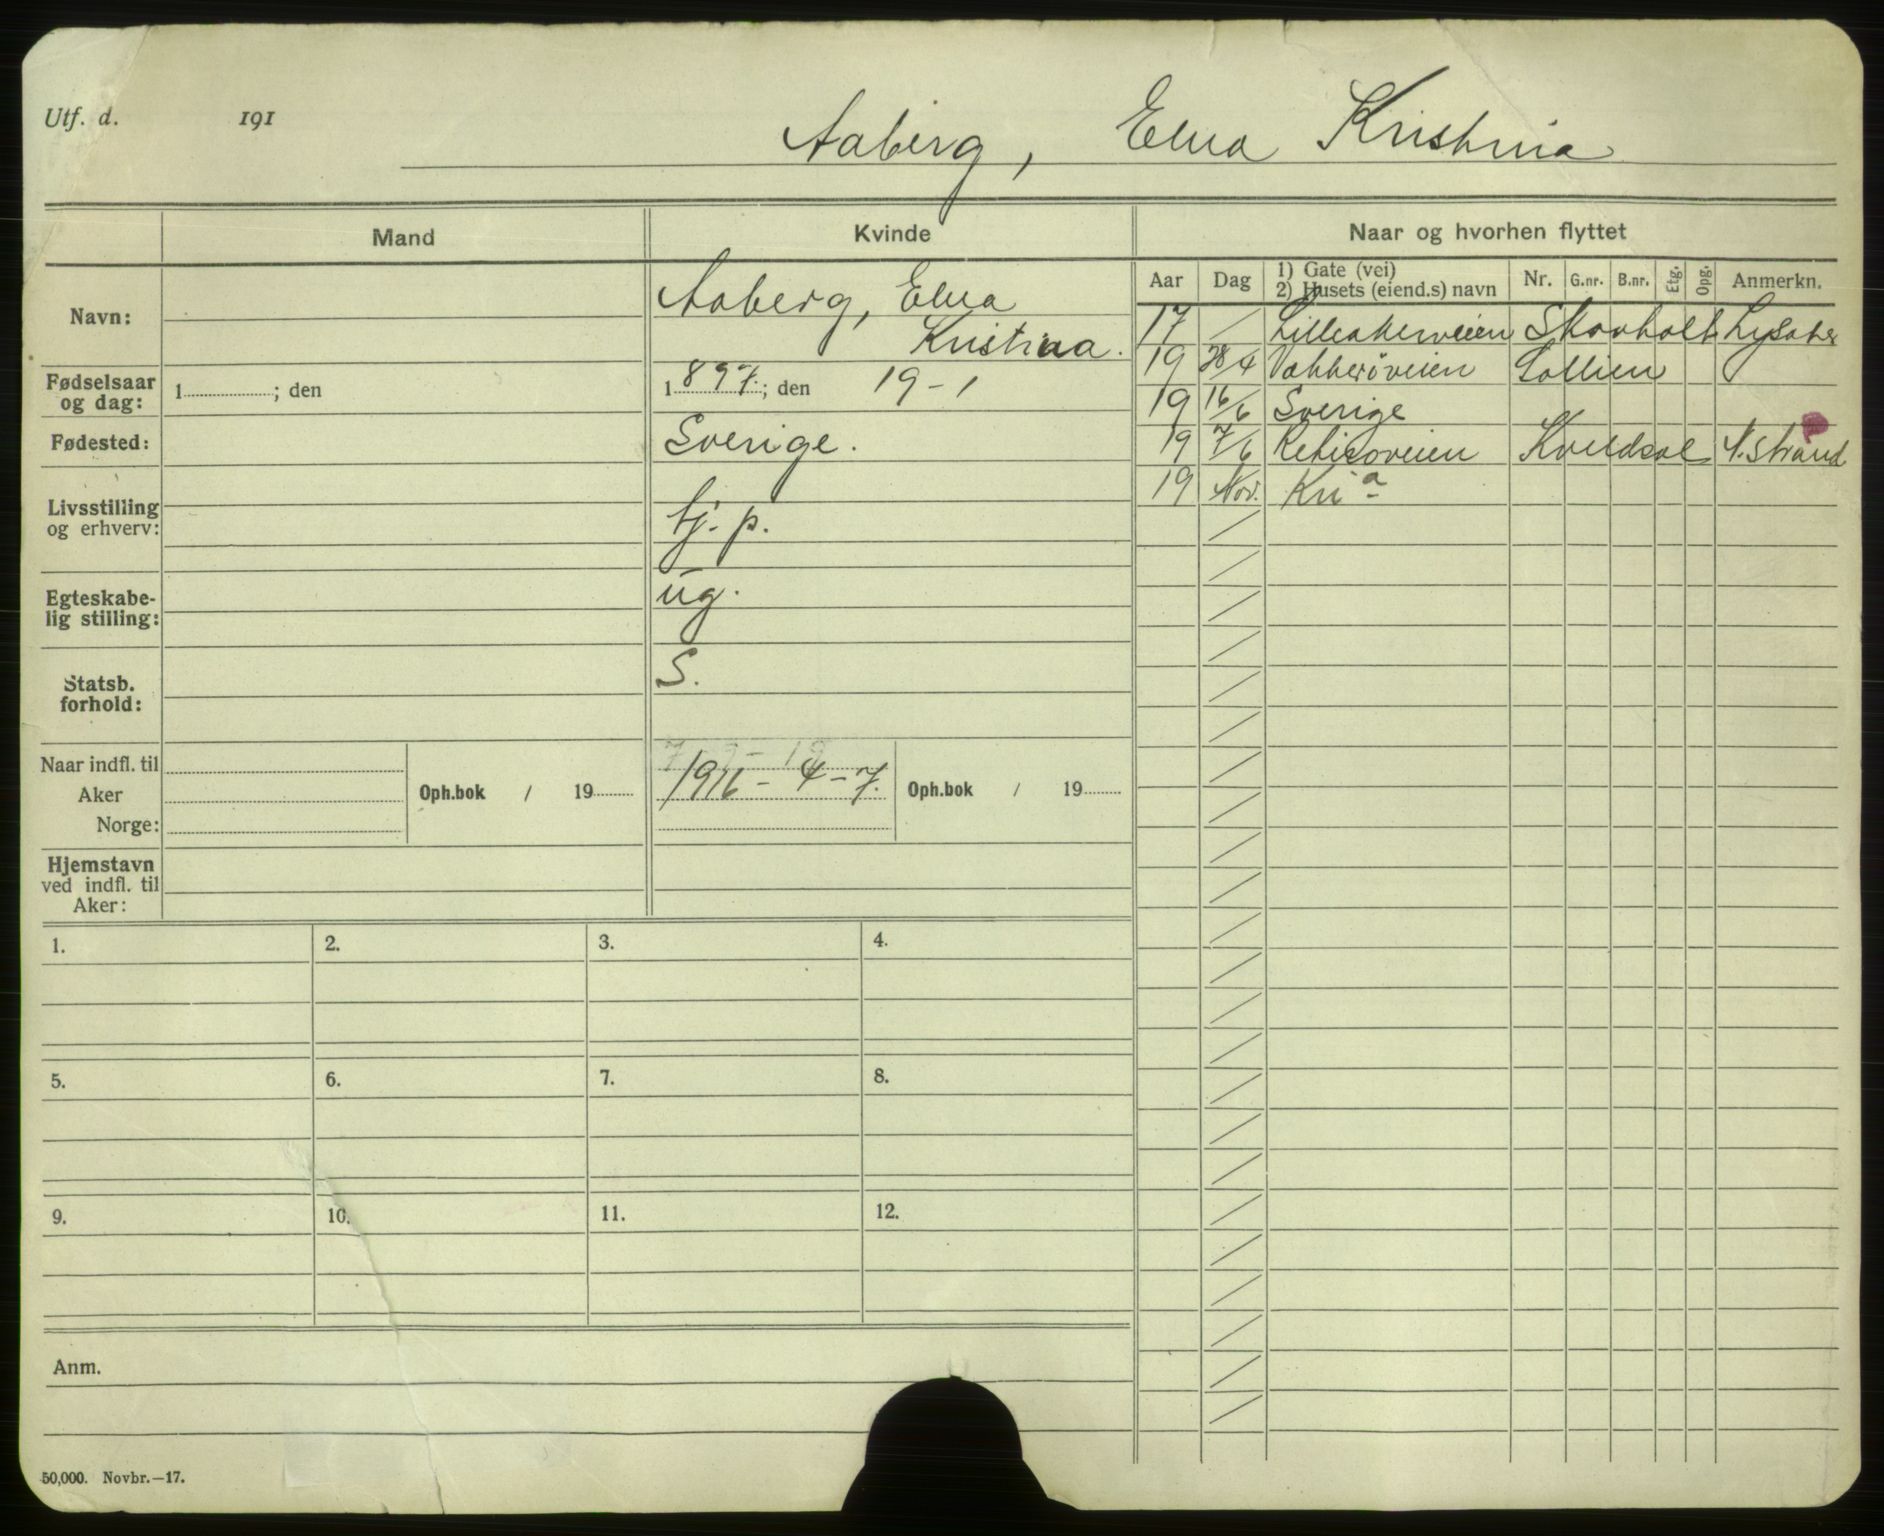 Utf. d. 191
Aaberg, Elna Kristina
Mand Kvinde Naar og hvorhen flyttet
Aar Dag 1) Gate (vei) 2) Husets (eiend.s) navn Nr. G.nr. B.nr. Etg. Opg. Anmerkn.
Navn: Aaberg, Elna
Kristina.
Fødselsaar og dag: 1 ; den 1897; den 19-1
Fødested: Sverige.
Livsstilling og erhverv: tj. p.
Egteskabelig stilling: ug.
Statsb. forhold: S.
Naar indfl. til
Aker Oph.bok / 19 1916-4-7. Oph.bok / 19
Norge:
Hjemstavn
ved indfl. til
Aker:
17 / Lilleakerveien Skovholt Lysaker
19 28/4 Vækkerøveien Sollien
19 16/6 Sverige
19 7/6 Kveldsol N. Strand
19 Nov. Kria
1. 2. 3. 4.
5. 6. 7. 8.
9. 10. 11. 12.
Anm.
50,000. Novbr.—17.